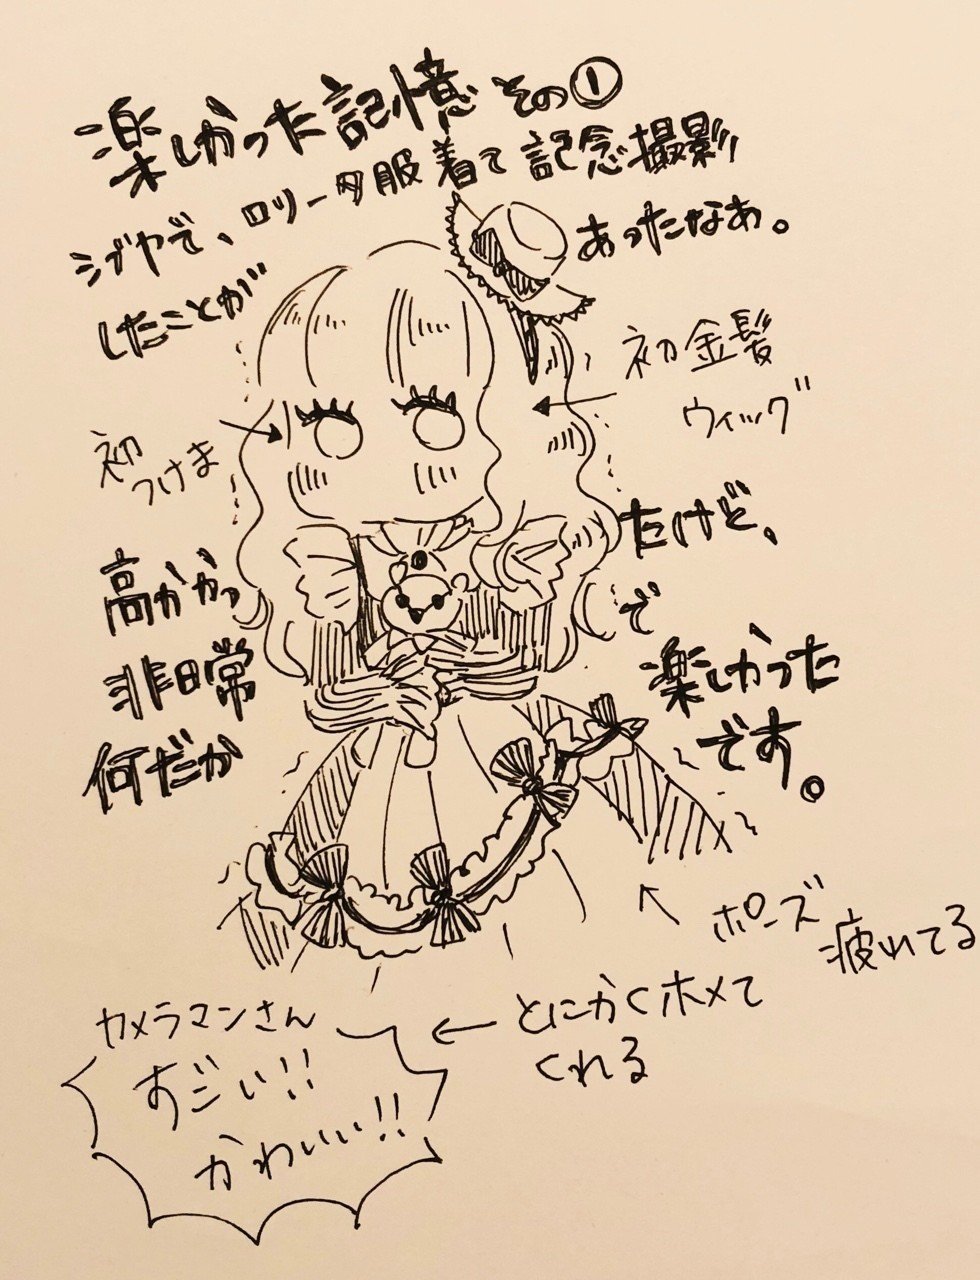 楽しかった記憶 その①
シブヤで、ロリータ服着て記念撮影
したことが あったなあ。
初金髪
ウィッグ
初
つけま
高かかっ たけど、
非日常 で
何だか 楽しかった
です。
ポーズ疲れてる
とにかくホメて
くれる
カメラマンさん
すごい!!
かわいい!!